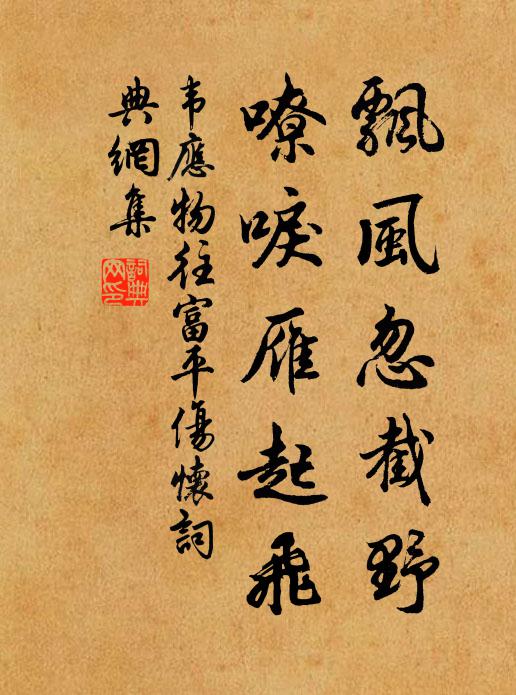 飄風忽截野
嘹唳雁起飛
韦應物往富平傷懷詞
典網集
詞典
网印